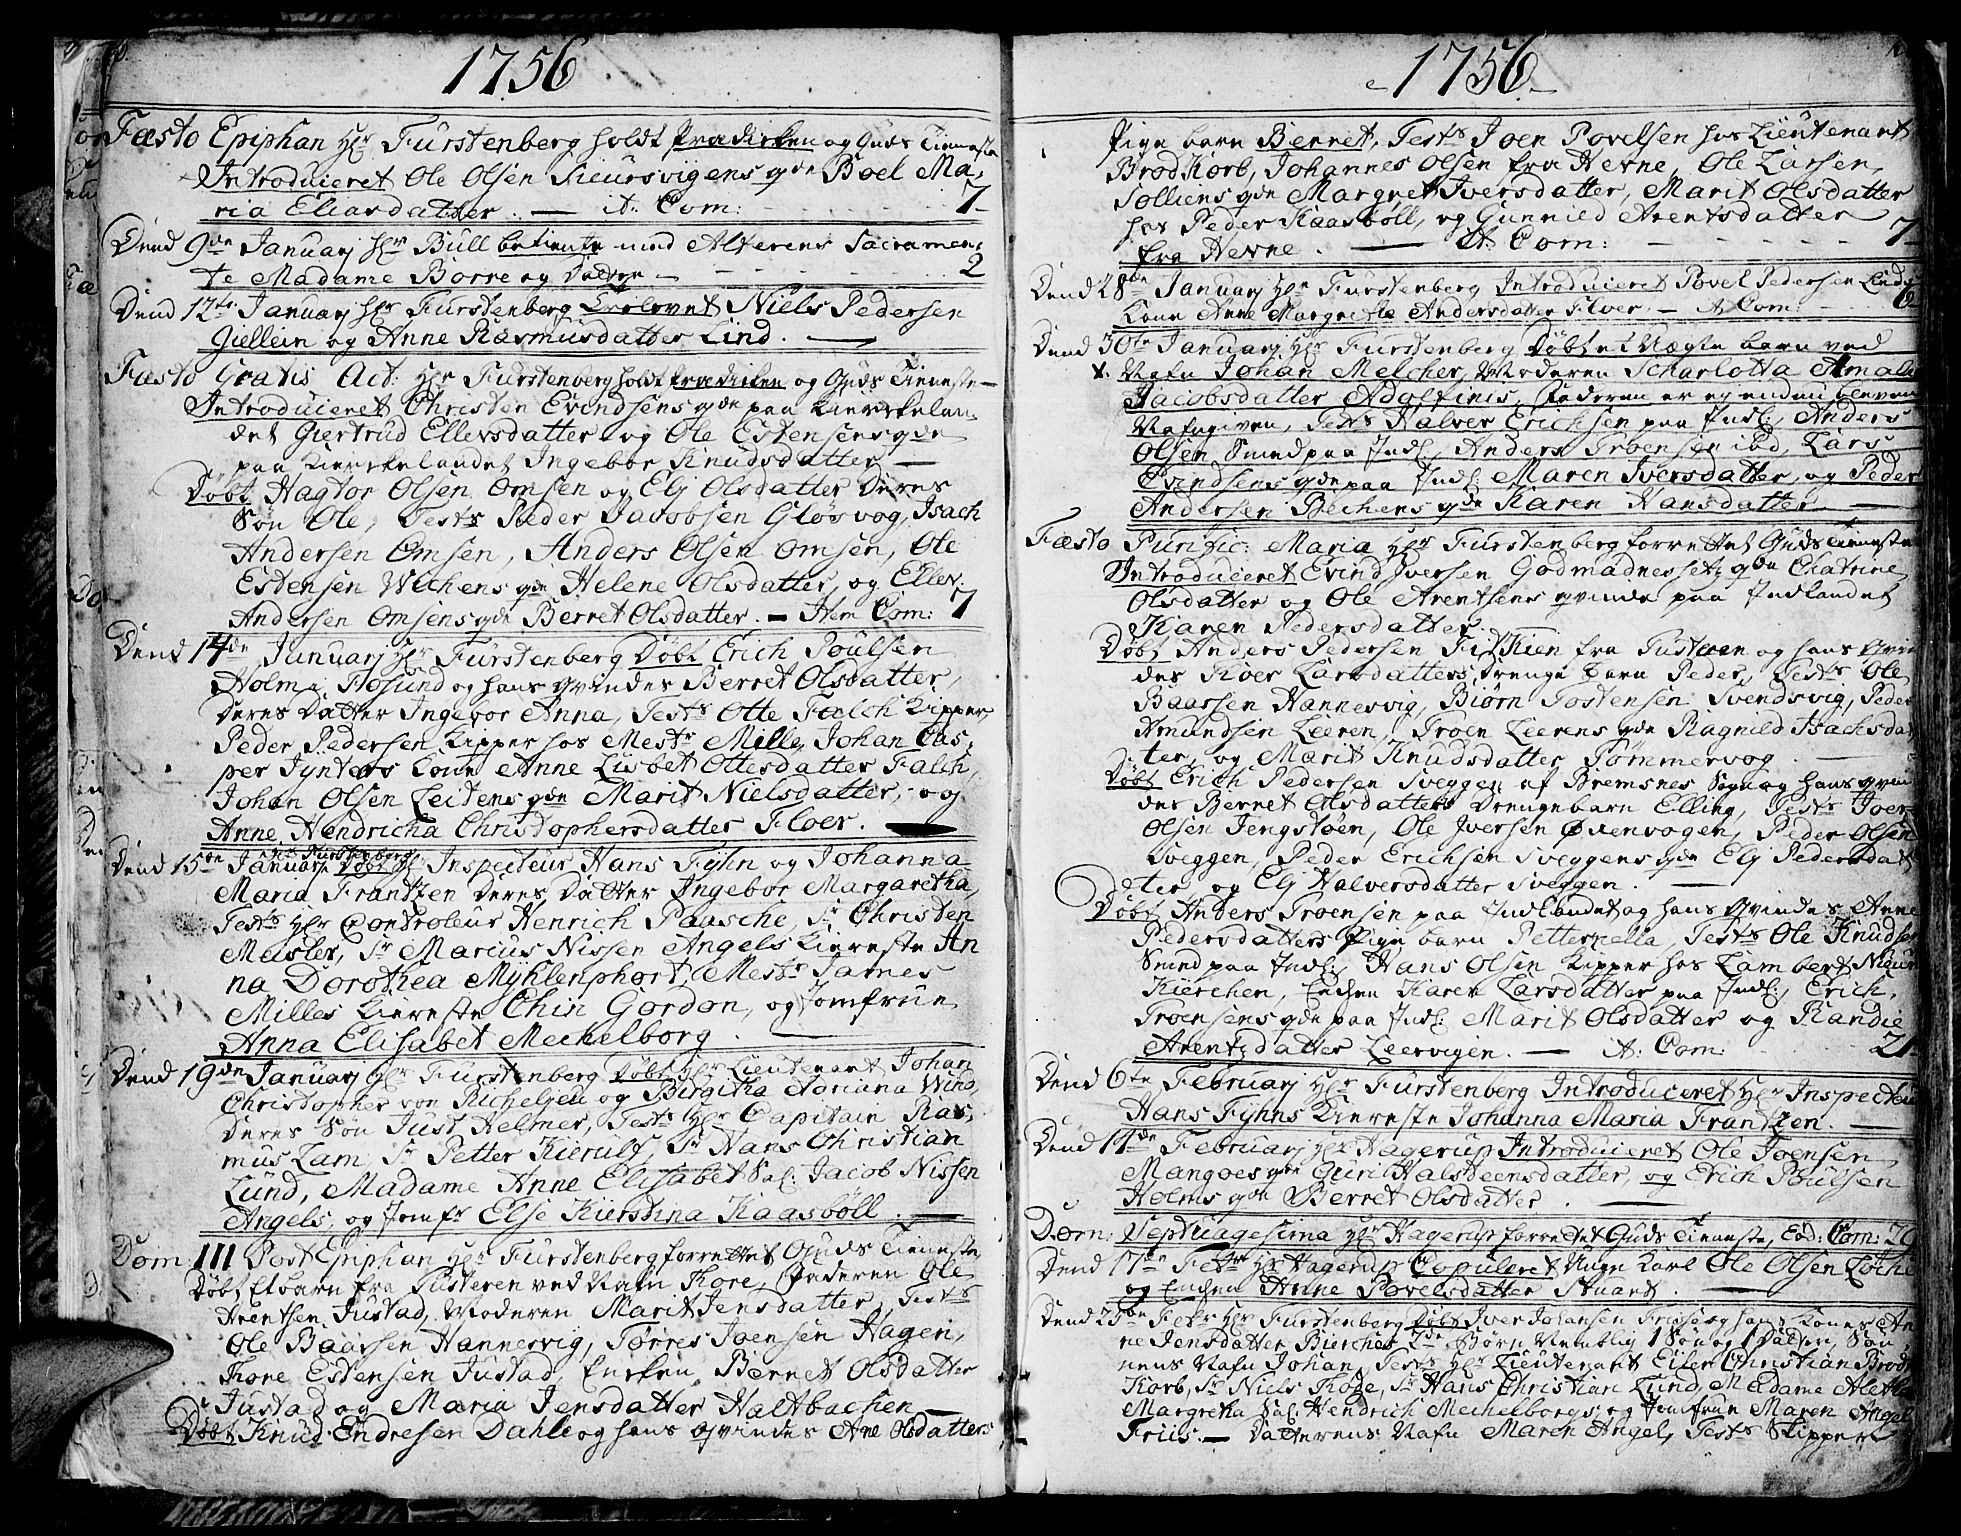 1756
Fæsto Epiphan Hr Fürstenberg holdt prædicken og Guds Tieneste
Introduceret Ole Olsen Sieursvigens qde Boel Ma,
ria Eliasdatter. — it. Com: 7
Dend 9de Januarj Hr Bull betiente med Alterens Sacramen,
te Madame Borre og Datter — 2
Dend 12te Januarj Hr Fürstenberg Trolovet Niels Pedersen
Giellein og Anne Rasmusdatter Lind. —
Fæsto Gratis Act: Hr Fürstenberg holdt prædicken og Guds Tieneste —
Introduceret Christen Evindsens qde paa Kierkelan,
det Giertrud Ellevsdatter og Ole Estensens qde
paa Kierkelandet Ingebor Knudsdatter —
Døbt Hagtor Olsen Omsen og Elj Olsdatter Deres
Søn Ole, Tests Peder Jacobsen Gløsvog, Isach
Andersen Omsen, Anders Olsen Omsen, Ole
Estensen Wechens qde Helene Olsdatter, og Ellev
Andersen Omsens qde Berret Olsdatter. — Item Com: 7
Dend 14de Januarj Hr Fürstenberg Døbt Erich Poulsen
Holm i Fosund og hans qvindes Berret Olsdatter,
Deres Datter Ingebor Anna, Tests Otte Falch Kipper,
Peder Pedersen Kipper hos Mestr Mille, Johan Cas,
per Jynters Kone Anne Lisbet Ottesdatter Falch,
Johan Olsen Leitens qde Marit Nielsdatter, og
Anne Hendricha Christophersdatter Floer. —
Dend 15de Januarj Hr Fürstenberg Døbt Hr Inspecteur Hans Fyhn og Johanna
Maria Frantzen Deres Datter Ingebor Margaretha,
Tests Hr Controleur Henrich Paasche, Sr Christen
Meisler, Sr Marcus Nissen Angels Kiereste An
na Dorothea Myhlenphort, Mestr James
Milles Kiereste Chin Gordon, og Jomfrue
Anna Elisabet Mechelborg. —
Dend 19de Januarj Hr Fürstenberg Døbt Hr Lieutenant Johan
Christopher von Richelieu og Birgitha Noriana Wind,
Deres Søn Just Helmer, Tests Hr Capitain Ras,
mus Lam, Sr Petter Kierulf, Sr Hans Christian
Lund, Madame Anne Elisabet Sal: Jacob Nissen
Angels, og Jomfr Else Kirstina Kaasbøll. —
Dom: III Post Epiphan Hr Fürstenberg forrettet Guds Tieneste
Døbt Et barn fra Tusteren ved Nafn Tore, Faderen Ole
Arentsen Justad, Moderen Marit Jensdatter, Tests
Ole Baarsen Hannesvig, Tørres Joensen Hagen,
Thore Estensen Justad, Encken Berret Olsdatter
Justad og Maria Jensdatter Haltbachen —
Døbt Knud Endresen Dahle og hans qvindes Ane Olsdatters
1756
Pige barn Berret, Tests Joen Povelsen hos Lieutenant
Brodkorb, Johannes Olsen fra Hevne, Ole Larsen
Solliens qde Margret Iversdatter, Marit Olsdatter
hos Peder Kaasbøll, og Gunnild Arentsdatter
fra Hevne. — it. Com: 7
Dend 28de Januarj Hr Fürstenberg Introduceret Povel Pedersen Linds
Kone Anne Margrethe Andersdatter Floer. — it. Com: 6
Dend 30te Januarj Hr Fürstenberg Døbt et Uægte barn ved
x. Nafn Johan Melcher, Moderen Scharlotta Amalia
Jacobsdatter Adolfinis, Faderen er ey endnu bleven
Nafngiven, Tests Halver Erichsen paa Indl:, Anders
Olsen Smed paa Indl:, Anders Troensen ibd, Lars
Evindsens qde paa Indl: Maren Iversdatter, og Peder
Andersen Bechens qde Karen Hansdatter —
Fæsto Purific: Maria Hr Fürstenberg forrettet Guds Tieneste
Introduceret Evind Iversen Godmadnesset, qde Chatrine
Olsdatter og Ole Arentsens qvinde paa Indlandet
Karen Pedersdatter.
Døbt Anders Pedersen Fitkien fra Tusteren og hans qvin
des Koer Larsdatters Drenge barn Peder, Tests Ole
Baarsen Hannesvig, Biørn Tostensen Svendsvig, Peder
Amundsen Leeren, Troen Leerens qde Ragnild Isachsdat
ter, og Marit Knudsdatter Tømmervog. —
Døbt Erich Pedersen Sveggen af Bremsnes Sogn og hans qvin
des Berret Olsdatters Drengebarn Elling, Tests Joer
Olsen Jengstøen, Ole Iversen Øvenvogen, Peder Olsen
Sveggen, Peder Erichsen Sveggens qde Elj Pedersdat
ter, og Elj Halversdatter Sveggen. —
Døbt Anders Troensen paa Indlandet og hans qvindes Anne
Pedersdatters Pige barn Petternella, Tests Ole Knudsen
Smed paa Indl:, Hans Olsen Kipper hos Lambert Nieur
Kierchen, Encken Karen Larsdatter paa Indl:, Erich
Troensens qde paa Indl: Marit Olsdatter og Randie
Arentsdatter Leervigen. — it: Com: 21
Dend 6te Februarj Hr Fürstenberg Introduceret Hr Inspecteur
Hans Fyhns Kiereste Johanna Maria Frantzen. —
Dend 11de Februarj Hr Hagerup Introduceret Ole Joensen
Mangoes qde Guri Halsteensdatter, og Erich Poulsen
Holms qde Berret Olsdatter. —
Dom: Septuagesima Hr Hagerup forrettet Guds Tieneste, Eod. Com: 20
Dend 17de Febr Hr Hagerup Copuleret Unge Karl Ole Olsen Loche
og Encken Anne Povelsdatter Stuart. —
Dend 25de Febr Hr Fürstenberg Døbt Iver Johansen Friis og hans Kones An
ne Jensdatter Bierches 2de Børn Nemblig 1 Søn og 1 Datter, Søn
nens Nafn Johan, Tests Hr Lieutenant Eiler Christian Brod
Korb, Sr Niels Hoze, Sr Hans Christian Lund, Madame Aletha
Margretha Sal: Hendrich Mechelborgs og Jomfrue Maren Angel
Friis. — Datterens Nafn Maren Angel, Tests Skipper